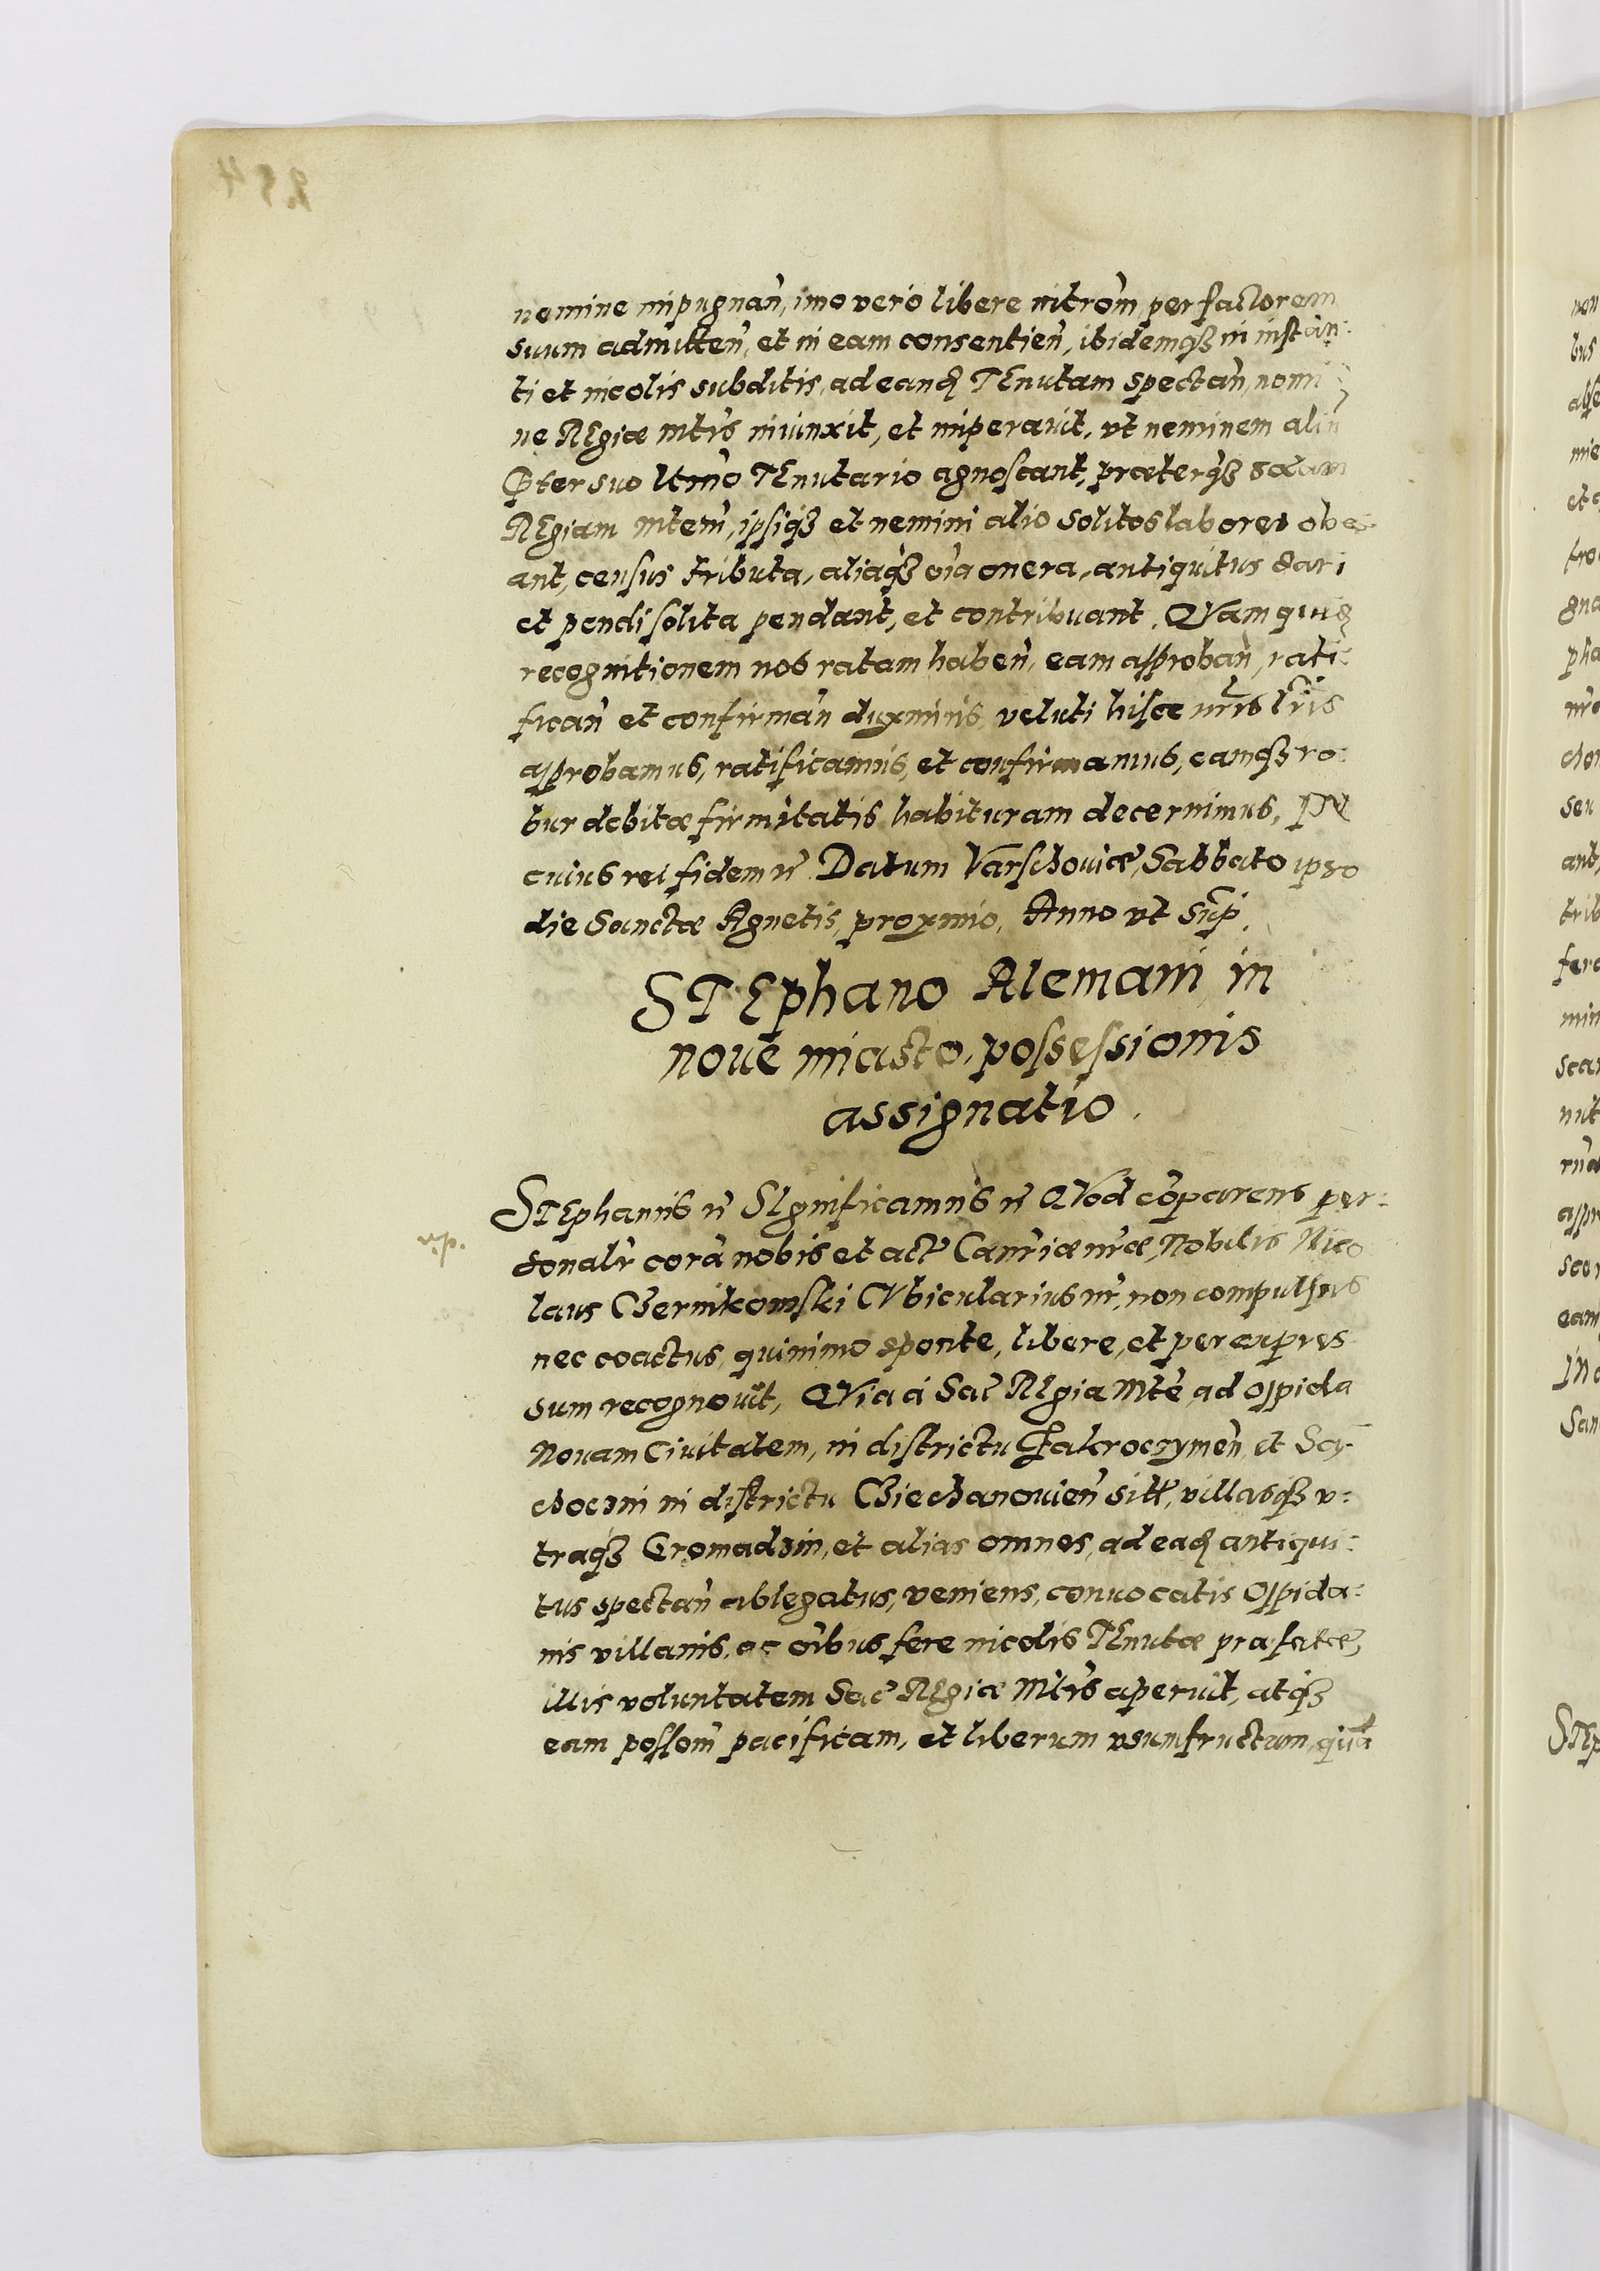 nemine impugnañ, imo vero libere introm̃ per factorem
suum admitteñ, et in eam consentieñ, ibidemqȝ in instan:
ti et incolis subditis, ad eandȝ TEnutam spectañ, nomi
ne REgiæ mtis iniunxit, et imperavit, vt neminem aliu
suo ltimo TEnutario agnoscant, præterqȝ
REgiam mtem, ipsiqȝ et nemini alio solitos labores obe:
ant, census tributa, aliaqȝ oĩa onera, antiquitus dari
et pendi solita pendant, et contribuant. QVam quidȝ
recognitionem nos ratam habeñ, eam approbañ, rati:
ficañ et confirmañ duximus, veluti hisce nr̃is lr̃is
approbamus, ratificamus, et confirmamus, eamqȝ ro:
bur debitæ firmitatis habituram decernimus, IN
cuius rei fidem &c Datum Varschouiæ, Sabbato ipso
die Sanctæ Agnetis, proximo, Anno vt Sup̃.
STEphano Alemani in
noue miasto, possessionis
assignatio.
STEphanus &c SIgnificamus &c QVod cõparens per:
sonalr̃ corã nobis et act Canr̃iæ nr̃æ, Nobilis Nico
laus Czernikowski CVbicularius nr̃, non compulsus
nec coactus, quinimo sponte, libere, et per expres
sum recognouit, QVia á Sac̃ REgia Mte ad oppida
Nouam Ciuitatem, in districtu Zakroczymeñ et Soy
choczin in districtu Cziechanouieñ sitt, villasqȝ v:
traqȝ Gromadzin, et alias omnes, ad eadȝ antiqui:
tus spectañ ablegatus, veniens, conuocatis Oppida:
nis villanis, ac oĩbus fere incolis TEnutæ præfatæ,
illis voluntatem Sac̃ REgiæ Mtis aperuit, atqȝ
eam possom̃ pacificam, et liberum vsumfructum, quã